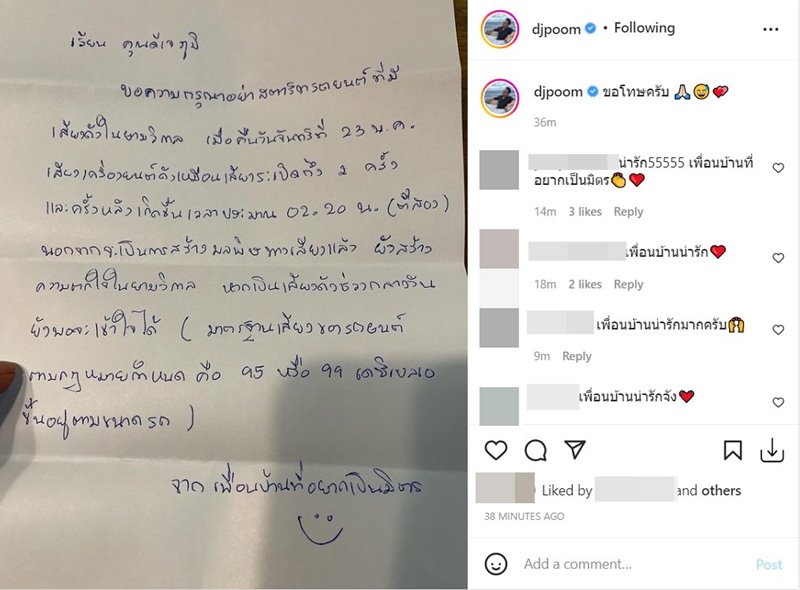 เรียน คุณดีเจภูมิ
ขอความกรุณาอย่าสตาร์ทรถยนต์ที่มี
เสียงดังในยามวิกาล เมื่อคืนวันจันทร์ที่ 23 พ.ค.
เสียงเครื่องยนต์ดังเหมือนเสียงระเบิดถึง 2 ครั้ง
และครั้งหลังเกิดขึ้นเวลาประมาณ 02.20 น. (ตีสอง)
นอกจากจะเป็นการสร้างมลพิษทางเสียงแล้ว ยังสร้าง
ความตกใจในยามวิกาล หากเป็นเสียงดังช่วงกลางวัน
ยังพอจะเข้าใจได้ ( มาตรฐานเสียงของรถยนต์
ตามกฎหมายกำหนด คือ 95 หรือ 99 เดซิเบลเอ
ขึ้นอยู่ตามขนาดรถ )
จาก เพื่อนบ้านที่อยากเป็นมิตร
djpoom • Following
djpoom ขอโทษครับ 🙏🏻😅💕
36m
น่ารัก55555 เพื่อนบ้านที่
อยากเป็นมิตร👏❤️
14m 3 likes Reply
เพื่อนบ้านน่ารัก❤️
18m 2 likes Reply
เพื่อนบ้านน่ารักมากครับ🙌
9m Reply
เพื่อนบ้านน่ารักจัง❤️
Liked by and others
38 MINUTES AGO
Add a comment...
Post